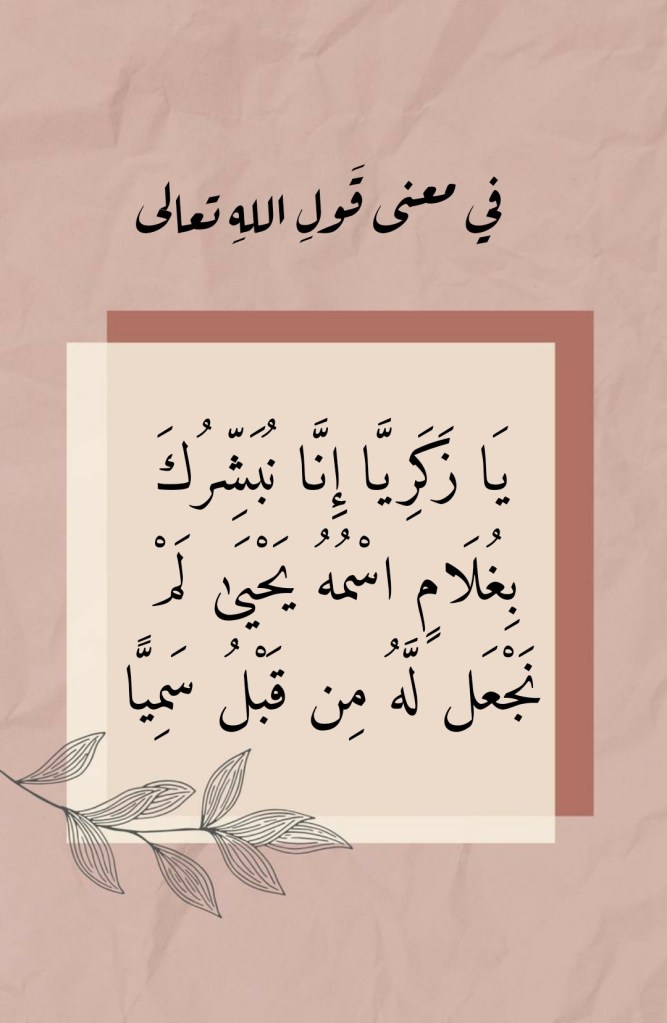 في معنى قَولِ اللهِ تعالى
يَا زَكَرِيَّا إِنَّا نُبَشِّرُكَ
بِغُلَامٍ اسْمُهُ يَحْيَىٰ لَمْ
نَجْعَل لَّهُ مِن قَبْلُ سَمِيًّا